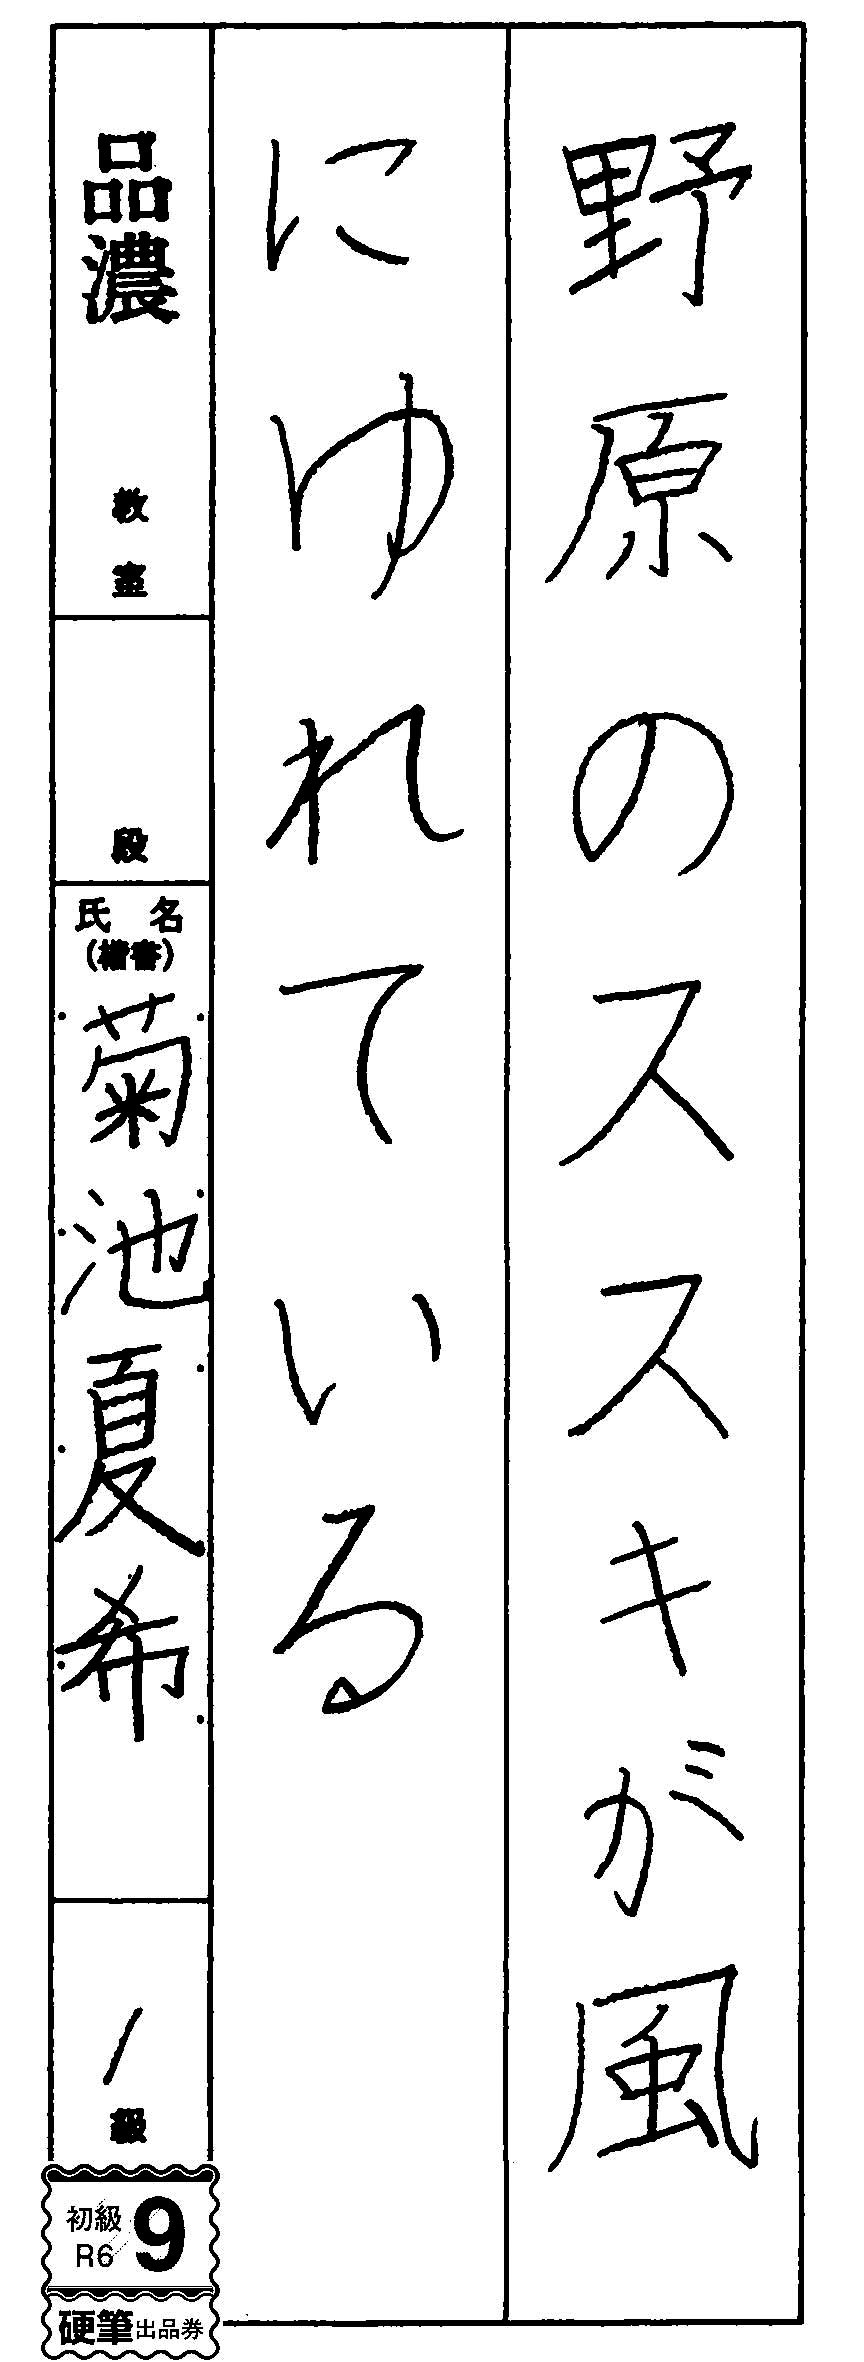 野原のススキが風
にゆれている
品濃
教室
段
氏名
(楷書)
菊池夏希
1級
初級
R6
9
硬筆出品券